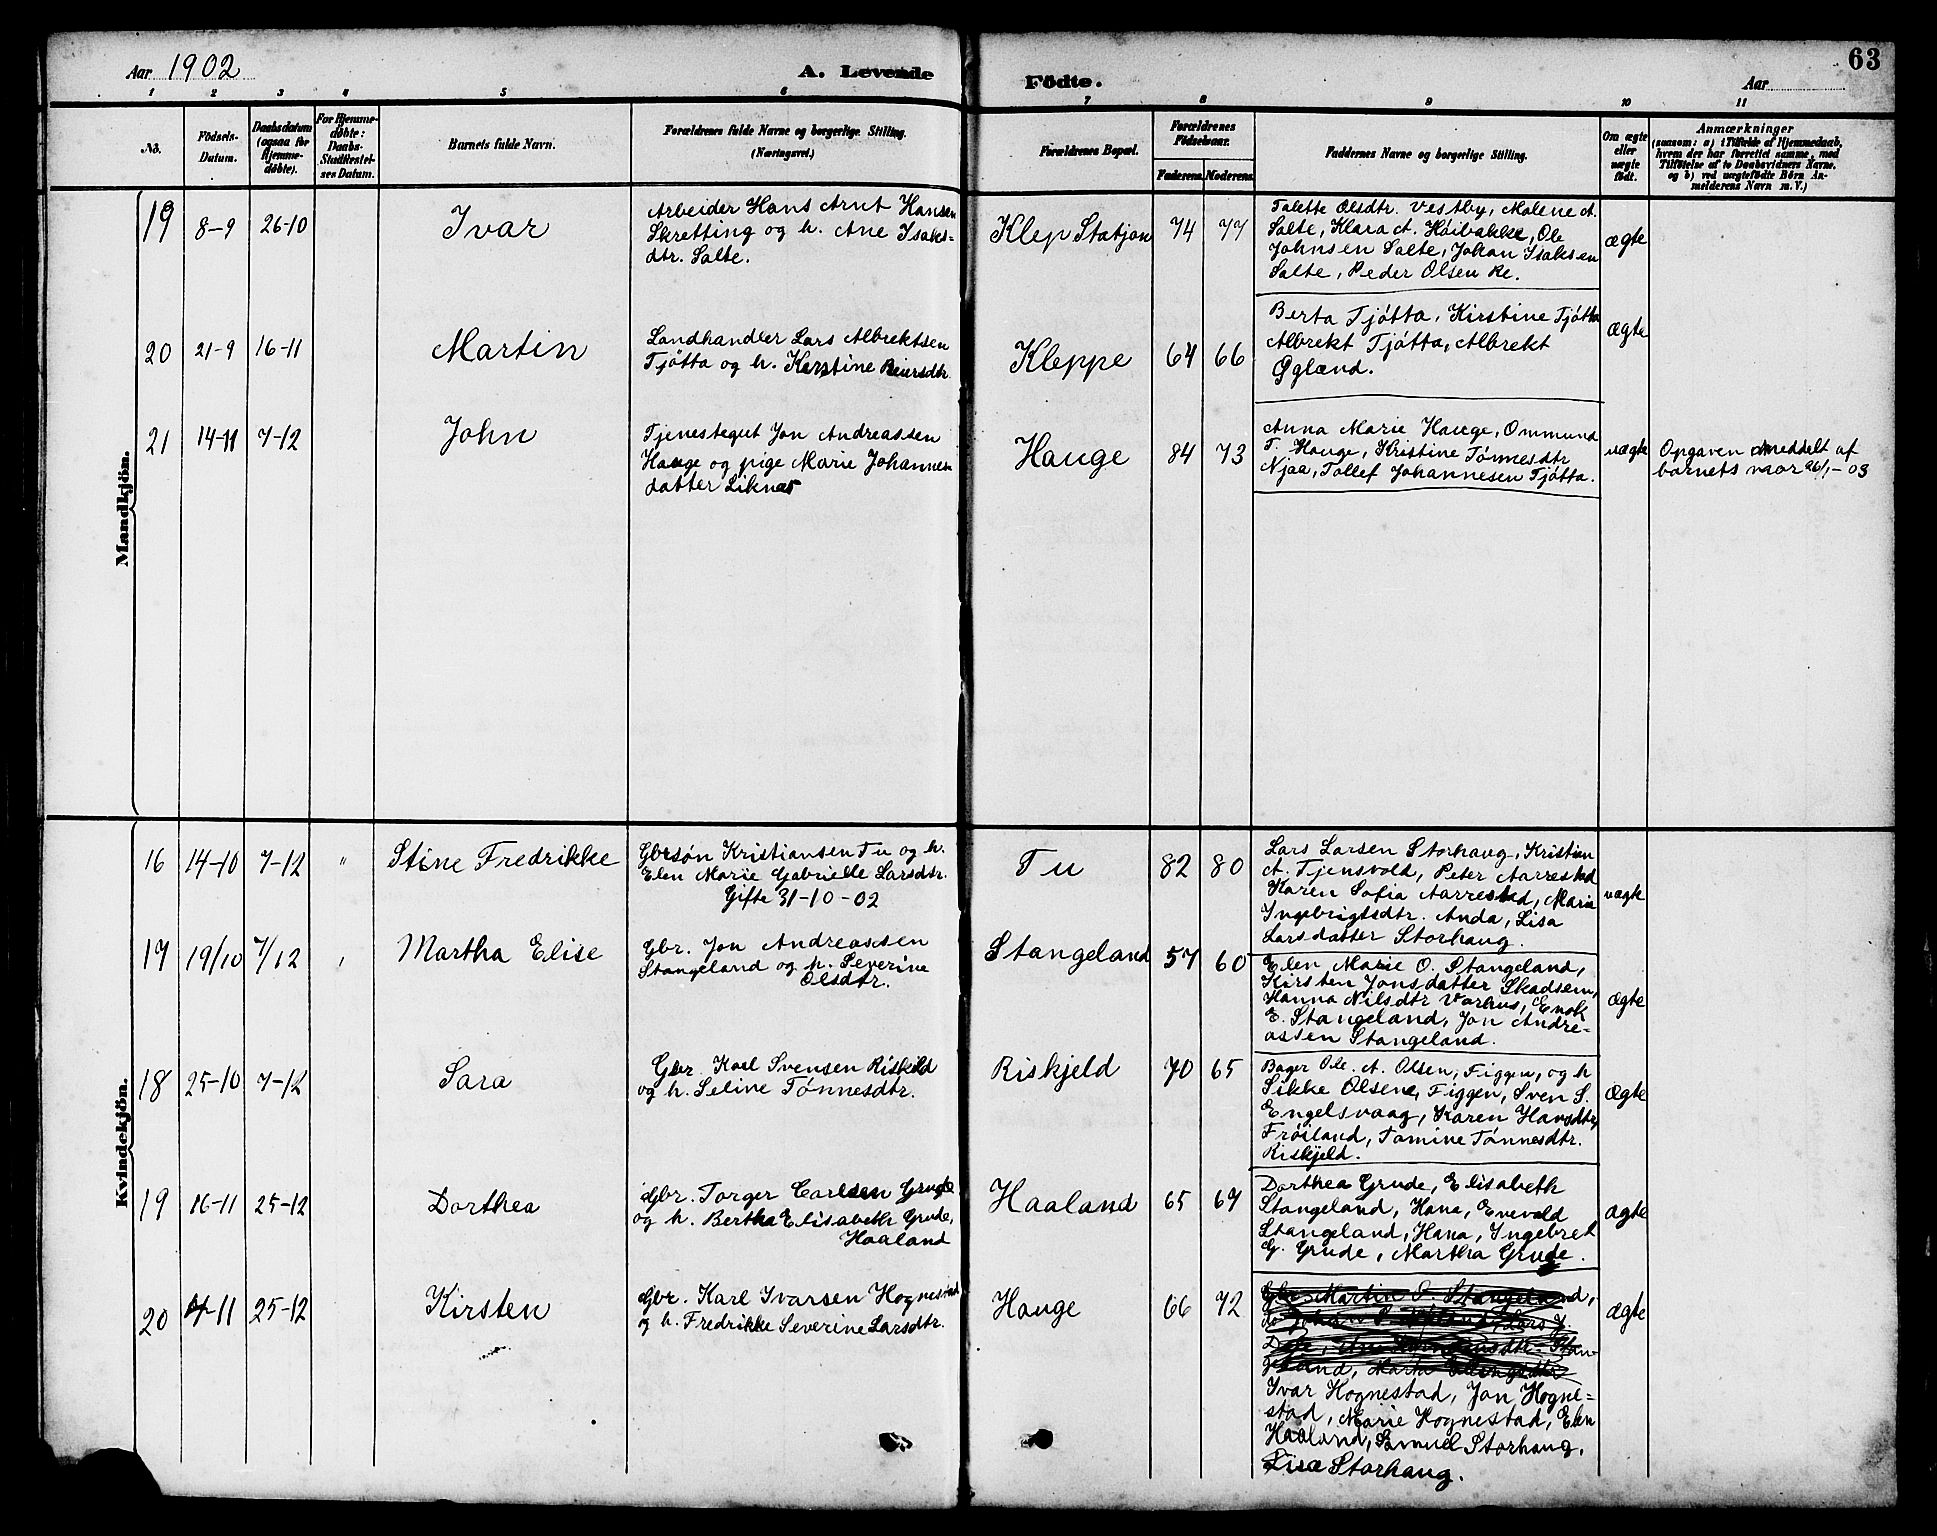 Aar 1902 A. Levende Födte. Aar 63
1 2 3 4 5 6 7 8 9 10 11
No. Födsels-Datum. Daabsdatum (ogsaa for Hjemme-døbte). For Hjemme-døbte: Daabs-Stadfæstel-ses Datum. Barnets fulde Navn. Forældrenes fulde Navne og borgerlige Stilling. (Næringsvei.) Forældrenes Bopæl. Forældrenes Födselsaar. Faderens. Moderens. Faddernes Navne og borgerlige Stilling. Om ægte eller uægte födt. Anmærkninger (saasom: a) i Tilfælde af Hjemmedaab, hvem der har forrettet samme, med Tilföielse af to Daabsvidners Navne, og b) ved uægtefödte Börn An-melderens Navn m. V.)
Mandkjön.
19 8-9 26-10 Ivar
Arbeider Hans Arnt Hansen
Skretting og h. Ane Isaks-
dtr. Salte.
Klep Statjon 74 77
Talette Olsdtr. Vestby, Malene A.
Salte, Klara A. Høibakke, Ole
Johnsen Salte, Johan Isaksen
Salte, Peder Olsen Re.
ægte
20 21-9 16-11 Martin
Landhandler Lars Albrektsen
Tjøtta og h. Kerstine Reiersdtr
Kleppe 64 66
Berta Tjøtta, Kirstine Tjøtta
Albrekt Tjøtta, Albrekt
Øgland.
ægte
21 14-11 7-12 John
Tjenestegut Jon Andreassen
Hauge og pige Marie Johannes
datter Liknes
Hauge 84 73
Anna Marie Hauge, Ommund
T. Hauge, Kristine Tønnesdtr
Njaa, Tollef Johannesen Tjøtta.
uægte
Opgaven meddelt af
barnets mor 26/1-03
Kvindekjön.
16 14-10 7-12 " Stine Fredrikke
Gbrsøn Kristiansen Tu og h.
Elen Marie Gabrielle Larsdtr.
Gifte 31-10-02
Tu 82 80
Lars Larsen Storhaug, Kristian
A. Tjensvold, Peter Aarrestad
Karen Sofia Aarrestad, Maria
Ingebrigtsdtr. Anda, Lisa
Larsdatter Storhaug.
uægte
17 19/10 7/12 Martha Elise
Gbr. Jon Andreassen
Stangeland og h. Severine
Olsdtr.
Stangeland 57 60
Elen Marie O. Stangeland,
Kirsten Jonsdatter Skadsem,
Hanna Nilsdtr Varhus, Enok
E. Stangeland, Jon Andre-
assen Stangeland.
Ægte
18 25-10 7-12 Sara
Gbr. Karl Svensen Riskjeld
og h. Seline Tønnesdtr.
Riskjeld 70 65
Bager Ole. A. Olsen, Figgen, og h
Sikke Olsene, Figgen, Sven S.
Engelsvaag, Karen Hansdtr,
Frøiland, Tomine Tønnesdtr.
Riskjeld.
Ægte
19 16-11 25-12 Dorthea
Gbr. Torger Carlsen Grude
og h. Bertha Elisabeth Grude,
Haaland
Haaland 65 69
Dorthea Grude, Elisabeth
Stangeland, Hana, Enevald
Stangeland, Hana, Ingebret
G. Grude, Martha Grude.
Ægte
20 4-11 25-12 Kirsten
Gbr. Karl Ivarsen Hognestad
og h. Fredrikke Severine Larsdtr.
Hauge 66 72
Gbr. Martin O. Stangeland,
Ivar Hognestad, Jon Hogne-
stad, Marie Hognestad, Elen
Haaland, Samuel Storhaug,
Lisa Storhaug.
Ægte